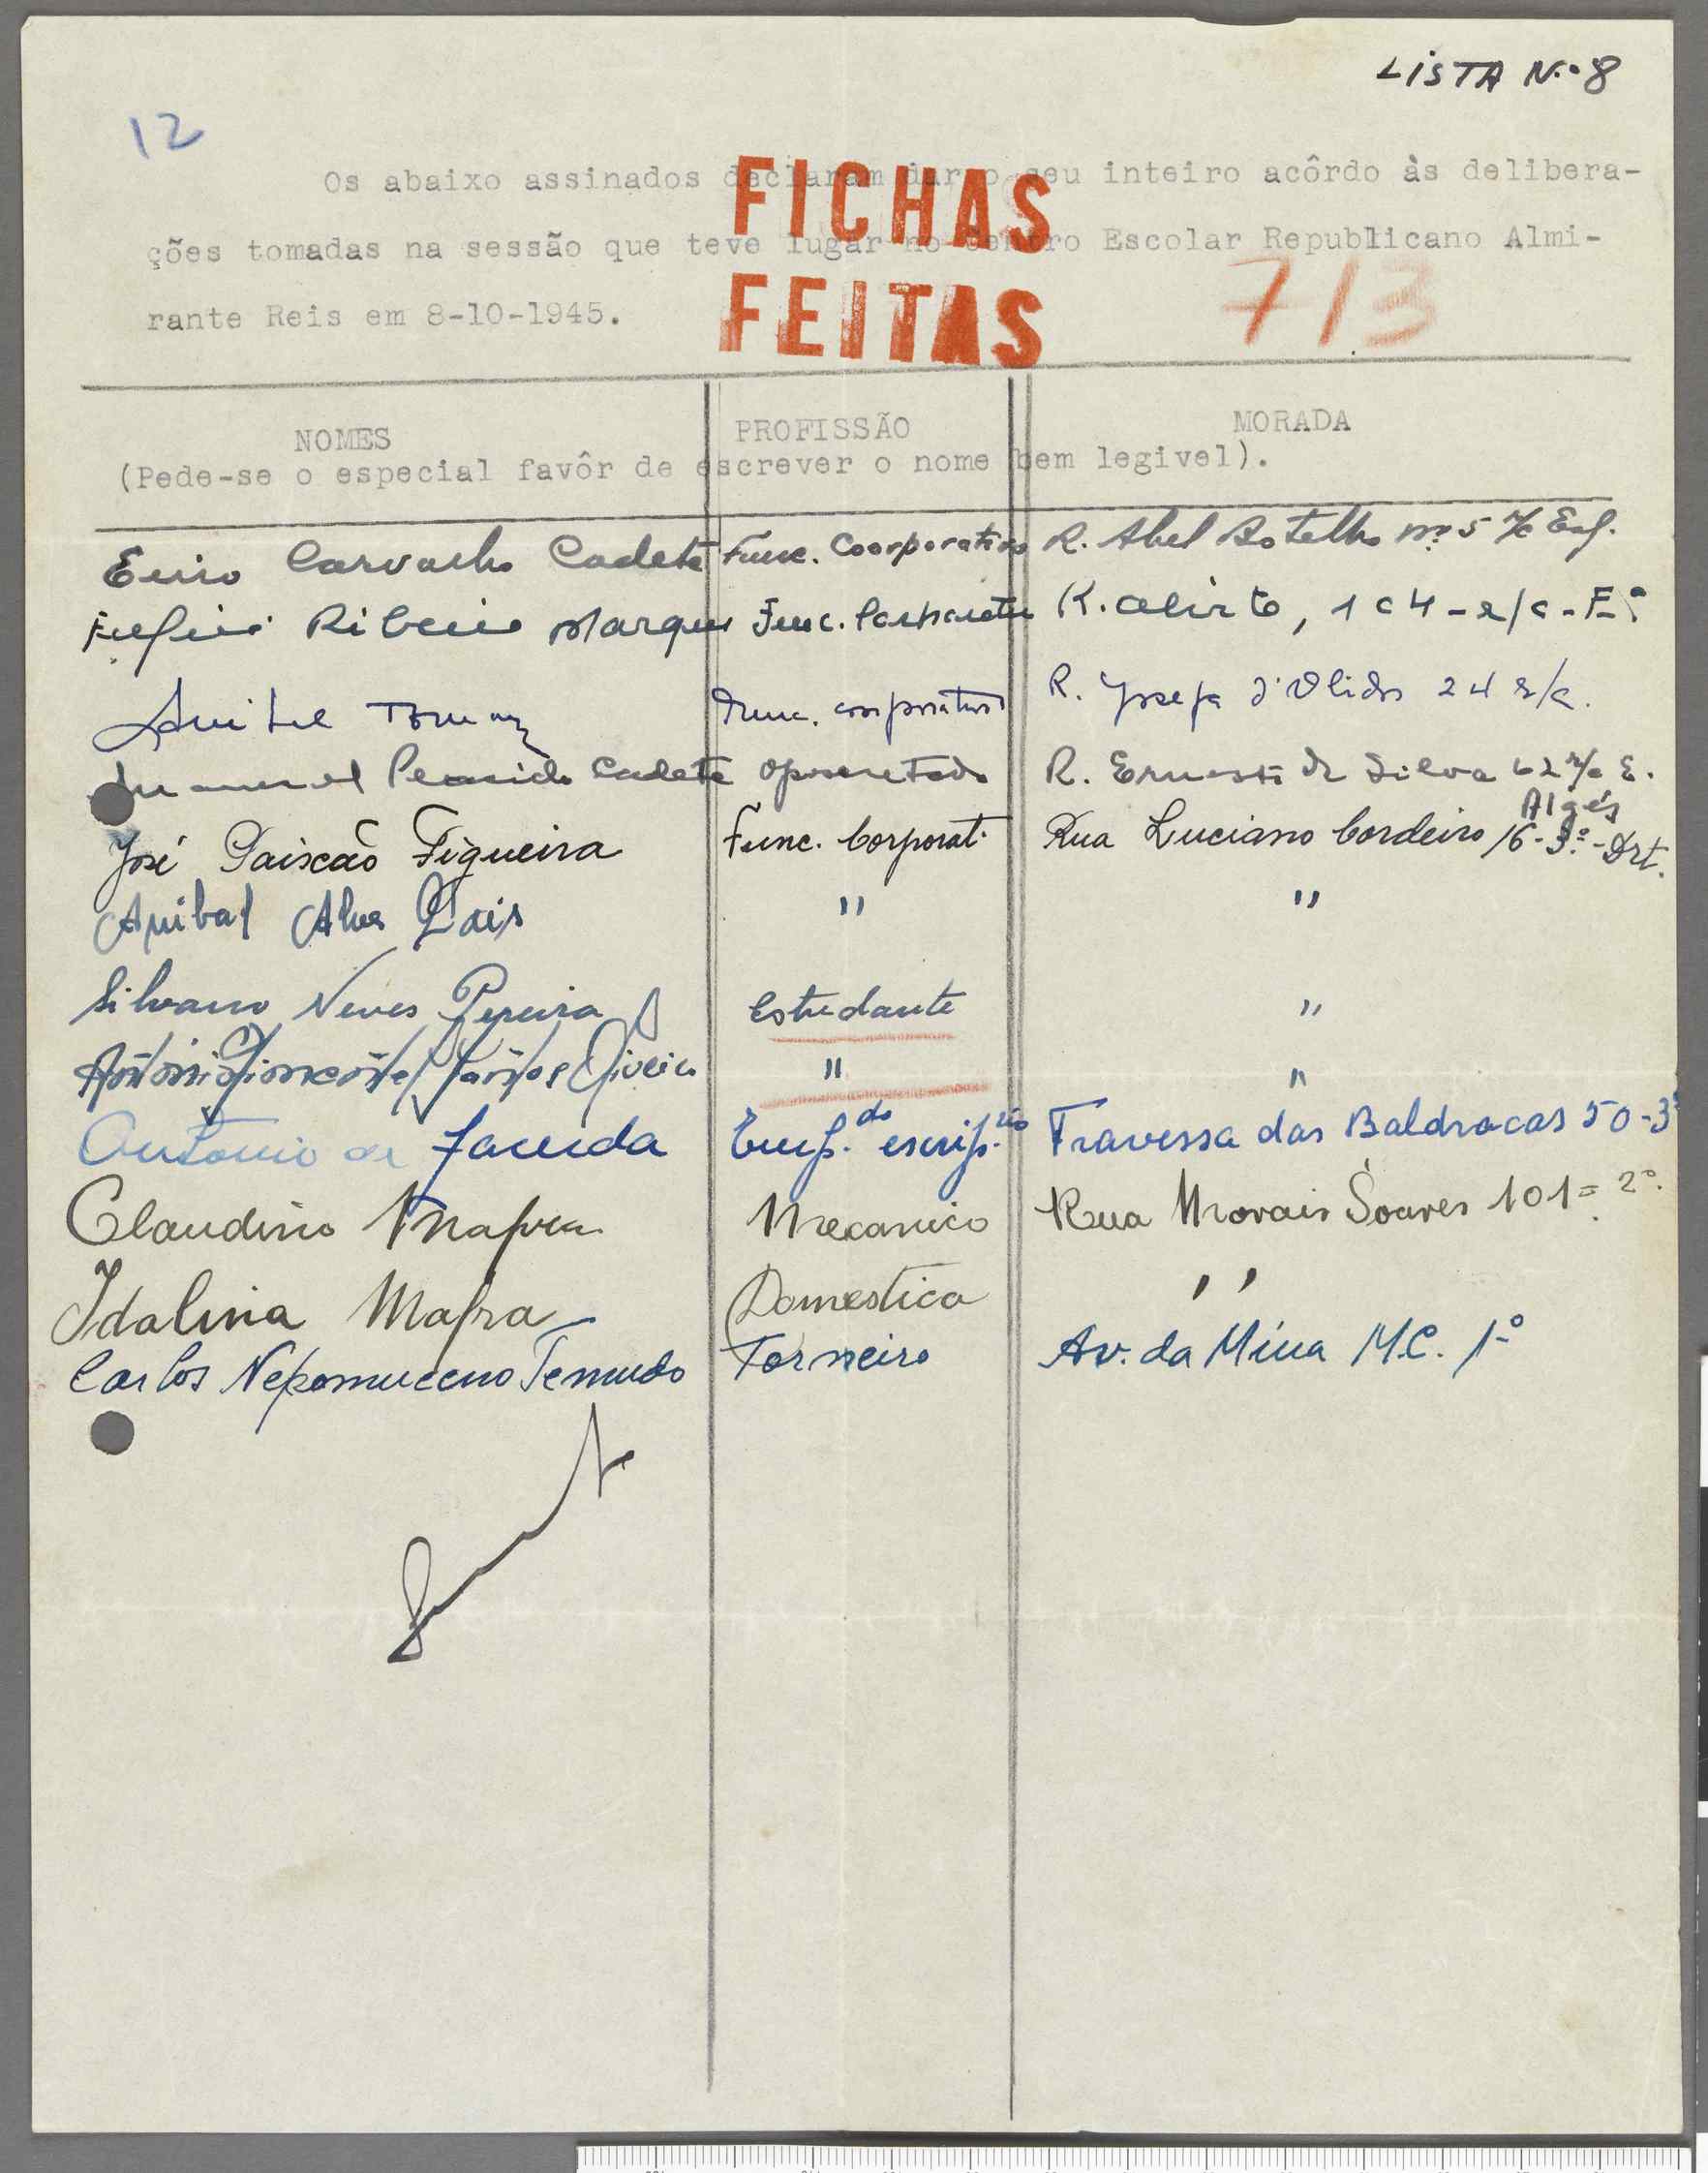 LISTA N.º 8
12
Os abaixo assinados declaram dar o seu inteiro acôrdo às delibera-
ções tomadas na sessão que teve lugar no Centro Escolar Republicano Almi-
rante Reis em 8-10-1945.
FICHAS
FEITAS
713
NOMES PROFISSÃO MORADA
(Pede-se o especial favôr de escrever o nome bem legivel).
Carvalho Cadete Func. Coorporativo R. Abel Botelho nº 5 r/c Esq.
Ribeiro Marques Func. R. 104 - r/c - E.º
Tomaz Func. corporativo R. Josefa d'Obidos 24 r/c.
Manuel Cadete Aposentado R. Ernesto da Silva 62 r/c E.
Algés
José Paixão Figueira Func. Corporat. Rua Luciano Cordeiro 16-3.º-Drt.
Anibal Alves Pais " "
Silvano Neves Pereira Estudante "
" "
Antonio de Lacerda Emp.do escrip.rio Travessa das Baldracas 50-3º
Claudino Mafra Mecanico Rua Morais Soares 101=2º.
Idalina Mafra Domestica "
Carlos Nepomuceno Temudo Torneiro Av. da Mina M.C. 1º